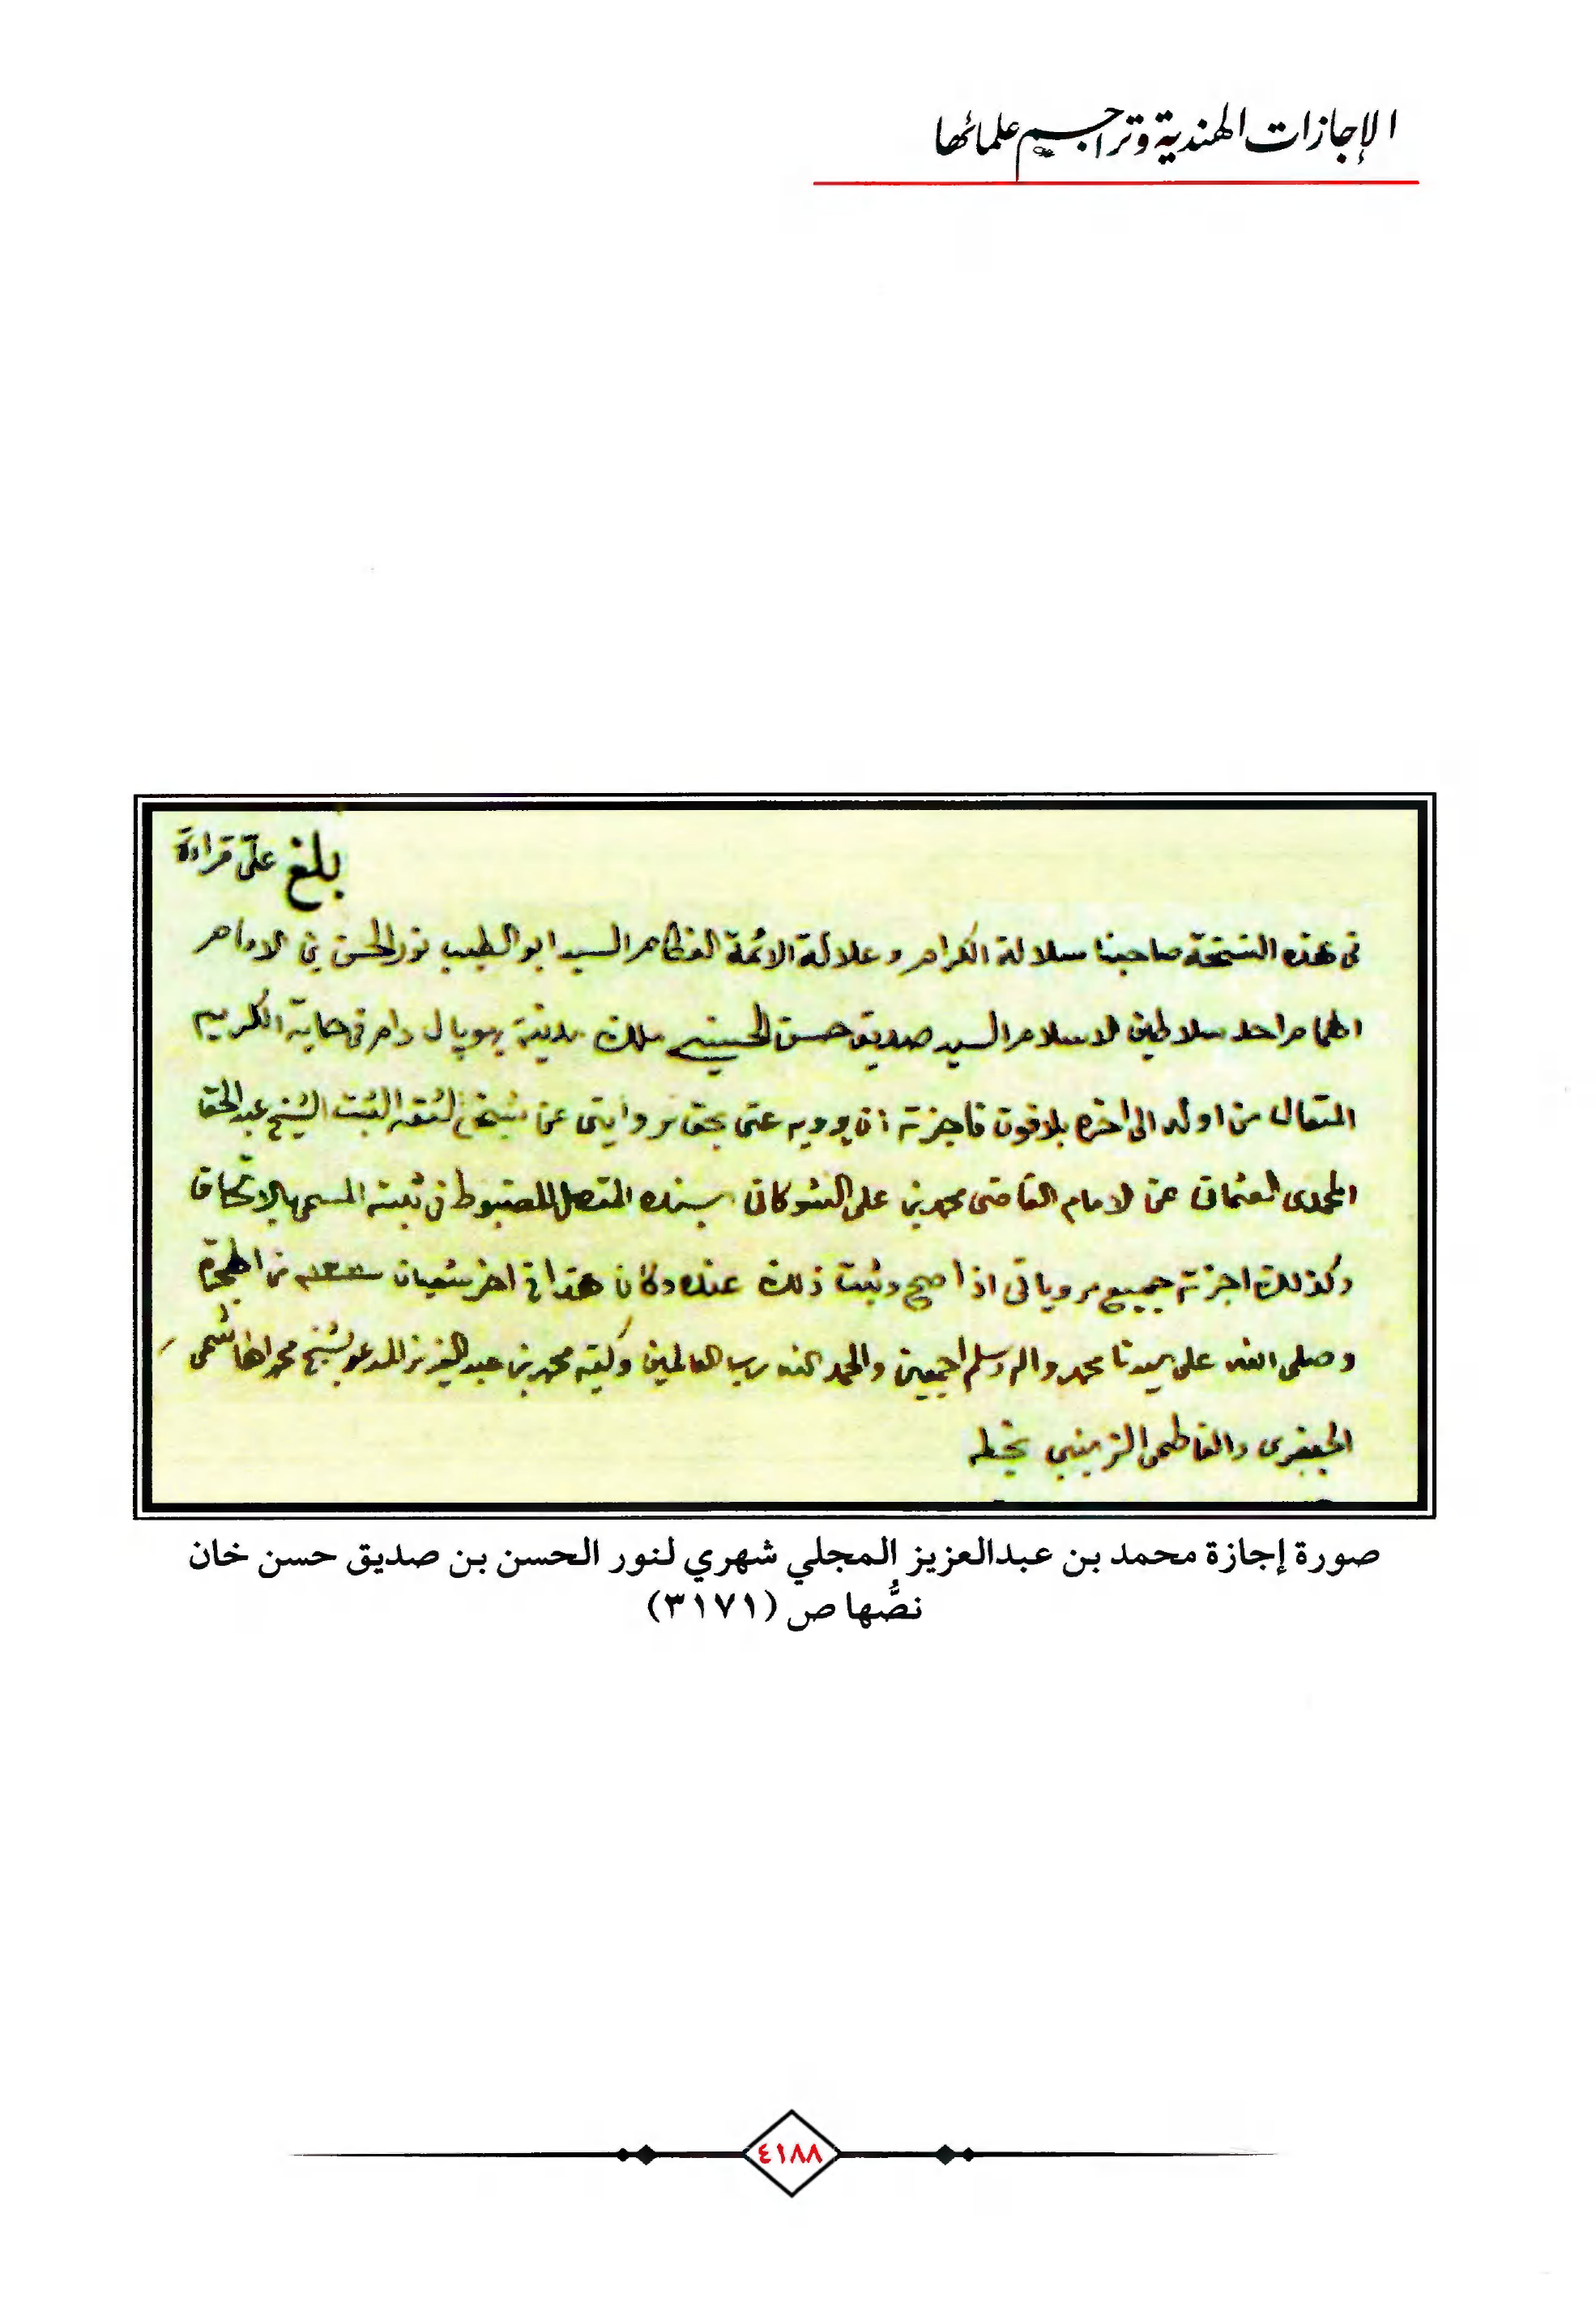 الإجازات الهندية وتراجم علمائها
بلغ علىّ قراءة
فى هذه النسخة صاحبنا سلالة الكرام و علالة الائمة العظام السيد ابو الطيب نور الحسن بن الامام
الهمام احد سلاطين الاسلام السيد صديق حسن الحسينى ملك مدينة بهوپال دام فى حماية الكريم
المتعال من اوله الى اخره بلا فوت فاجزته ان يرويه عنى بحق روايتى عن شيخى الثقة الثبت الشيخ عبد الحق
المحمدى العثمانى عن الامام القاضى محمد بن على الشوكانى بسنده المتصل المضبوط فى ثبته المسمى بالاتحاف
وكذلك اجزته جميع مروياتى اذا صح وثبت ذلك عنده وكان هذا فى اخر شعبان من الهجرة
وصلى الله على سيدنا محمد واله وسلم اجمعين والحمد لله رب العالمين وكتبه محمد بن عبد العزيز المدعو بشيخ محمد الهاشمى
الجعفرى والفاطمى الزينبى بخطه
صورة إجازة محمد بن عبدالعزيز المجلي شهري لنور الحسن بن صديق حسن خان
نصُّها ص (٣١٧١)
٤١٨٨